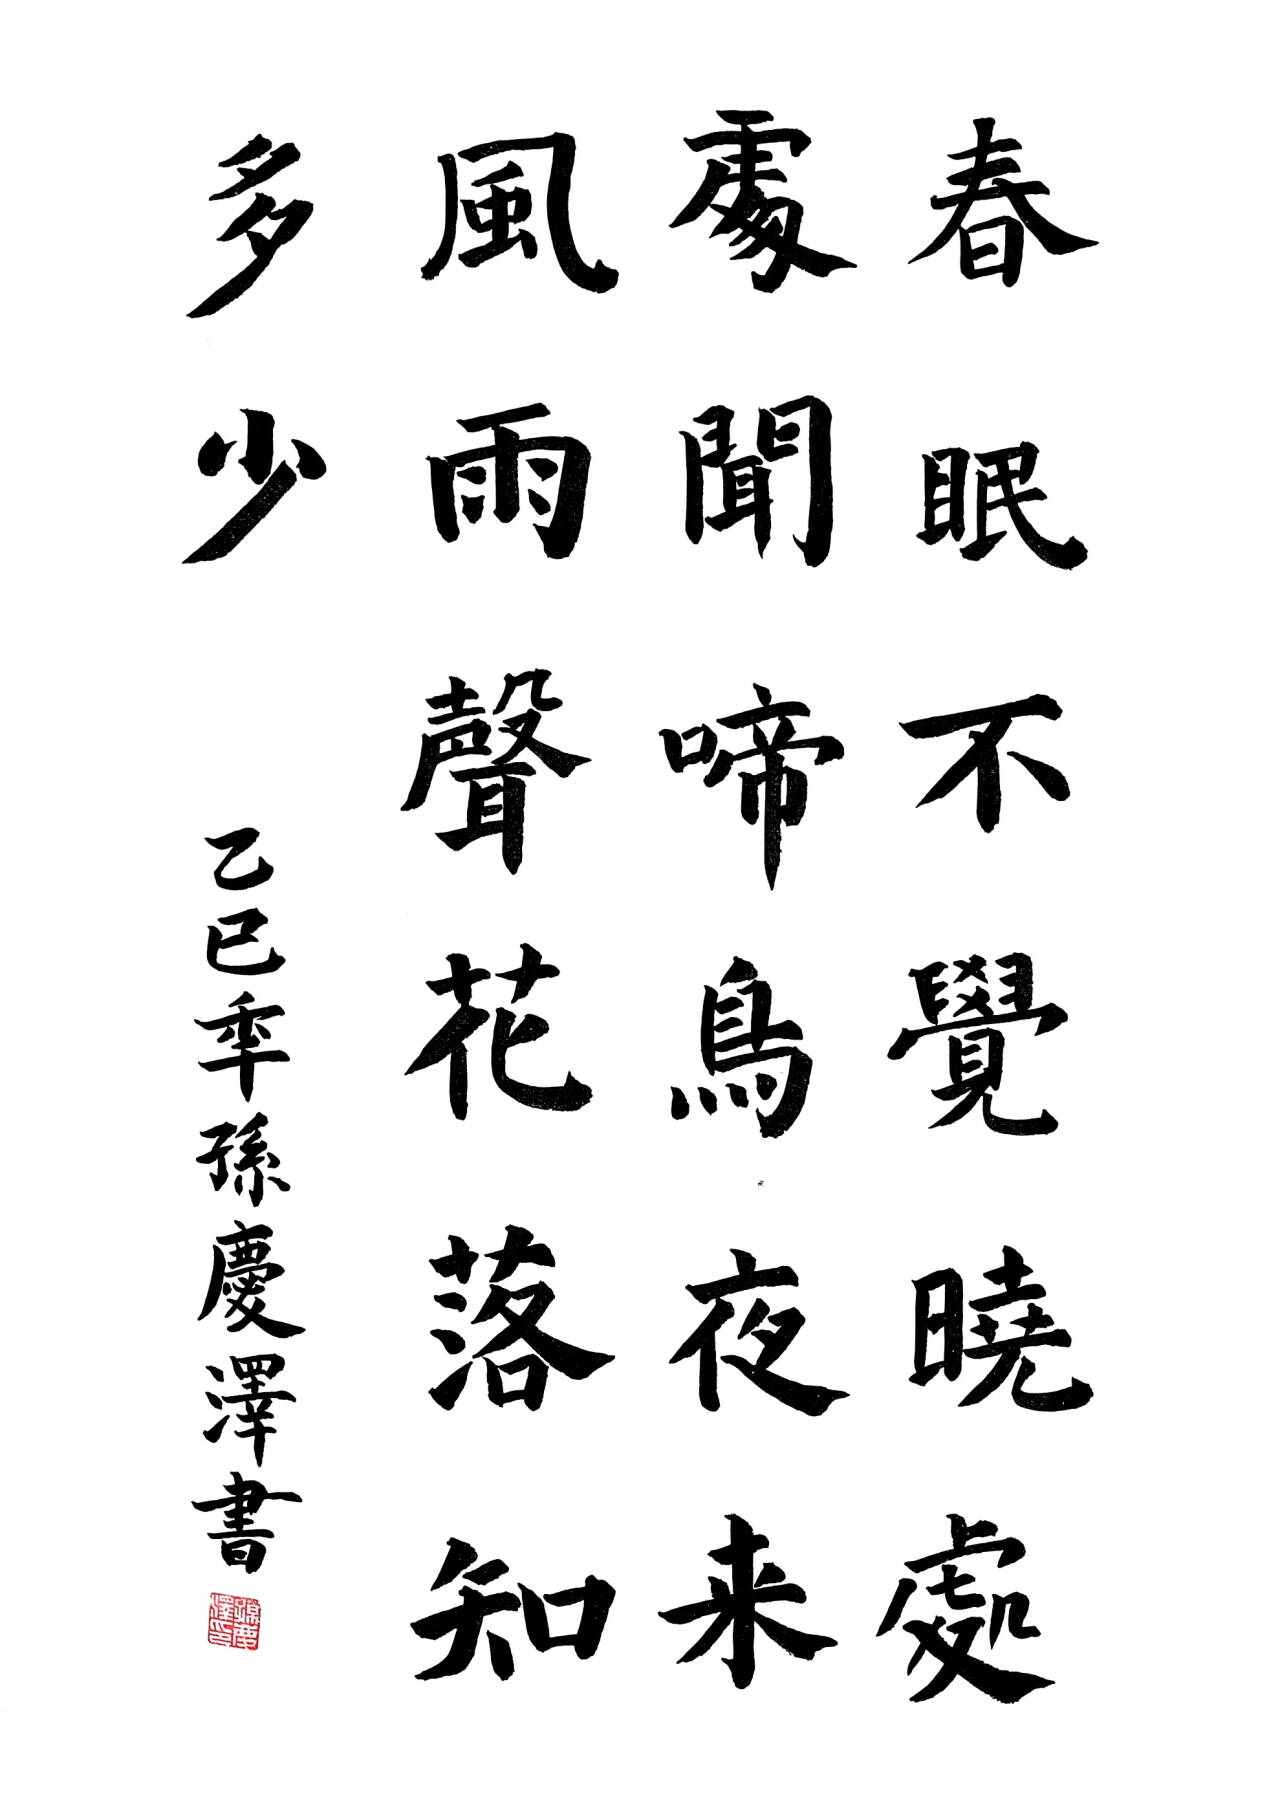 春眠不覺曉處
處聞啼鳥夜来
風雨聲花落知
多少
乙巳年孫慶澤書
孫慶澤印